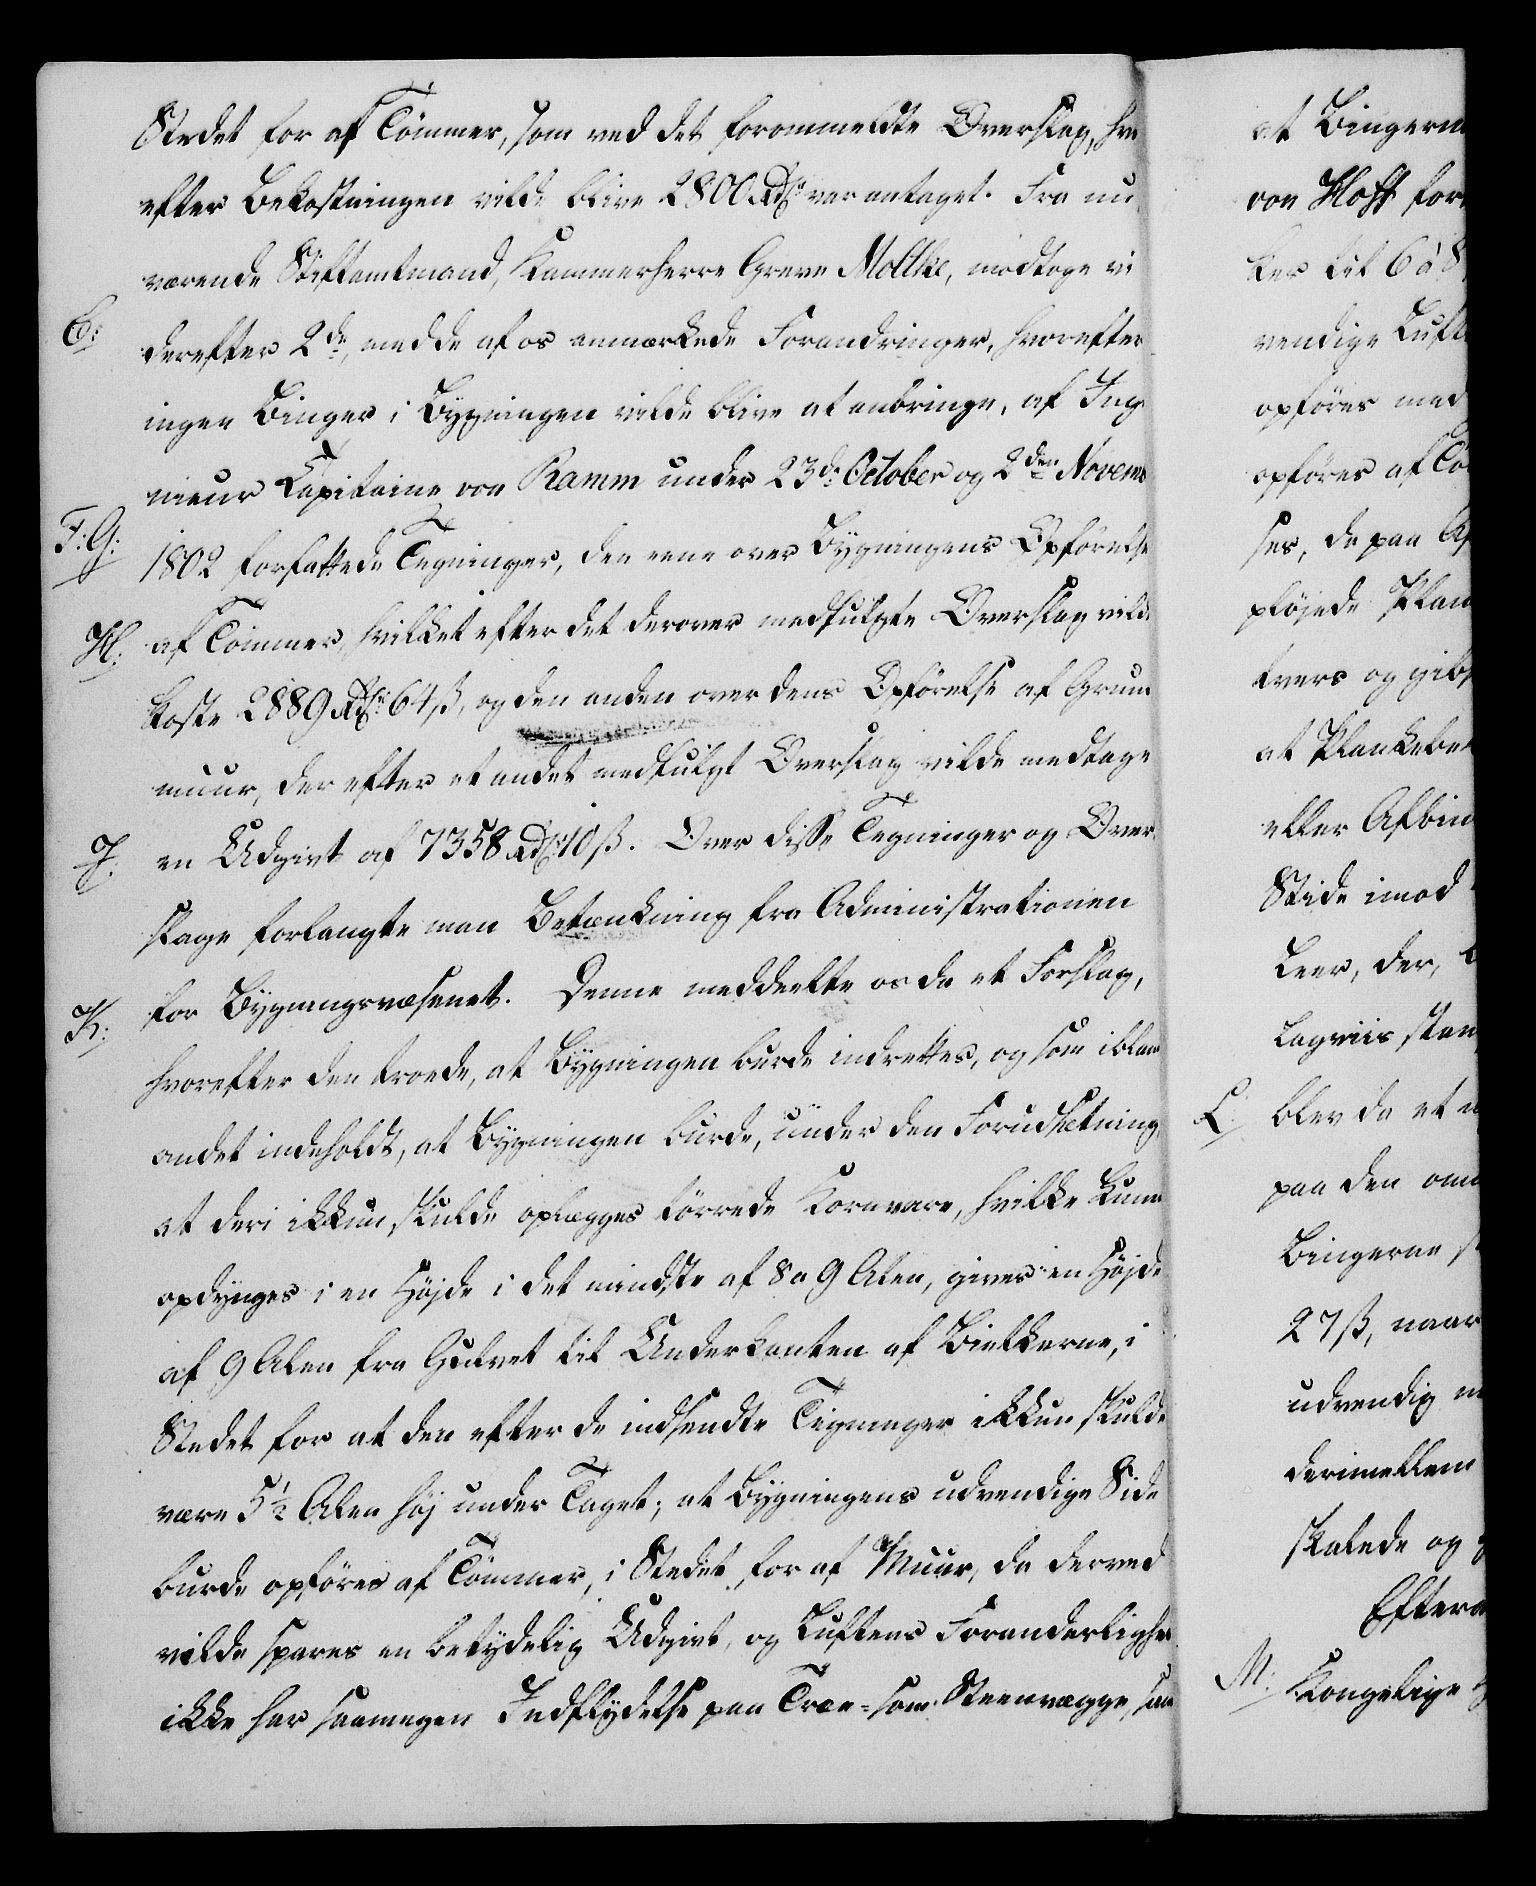 Stedet for af Tömmer, som ved det forommeldte Overslag, hvor
efter Bekostningen vilde blive 2800 Rdlr var antaget. Fra nu
værende Stiftamtmand, Kammerherre Greve Moltke, modtoge vi
E:
derefter 2de, med de af os anmærkede Forandringer, hvorefter
ingen Binger i Bygningen vilde blive at anbringe, af Inge
nieur Capitaine von Ramm under 23de October og 2den Novemb
F: G:
1802 forfattede Tegninger, den eene over Bygningens Opförelse
H:
af Tömmer, hvilket efter det derover medfulgte Overslag vilde
koste 2889 Rdlr 64 ß, og den anden over dens Opförelse af Grund
muur, der efter et andet medfulgt Overslag vilde medtage
J:
en Udgivt af 7358 Rdlr 10 ß. Over disse Tegninger og Over
slage forlangte man Betænkning fra Administrationen
K:
for Bygningsvæsenet. Denne meddeelte os da et Forslag,
hvorefter den troede, at Bygningen burde indrettes, og som iblant
andet indeholdt, at Bygningen burde, under den Forudsætning
at deri ikkun skulde oplægges törrede Kornvare, hvilke kunne
opdynges i en Höjde i det mindste af 8 a 9 Alen, gives en Höjde
af 9 Alen fra Gulvet til Underkanten af Bielkerne, i
Stedet for at den efter de indsendte Tegninger ikkun skulde
være 5½ Alen höj under Taget; at Bygningens udvendige Side
burde opföres af Tömmer, i Stedet for af Muur, da derved
vilde spares en betydelig Udgivt, og Luftens Foranderlighed
ikke har saamegen Indflydelse paa Træe- som Steenvægge, sam
at Bingerne
von Hoff for
ker til 6 á 8
vendige Luft
opföres med
opföres af Tö
ser, da paa
plöjede Plan
tvers og gibs
at Plankebe
eller Afbin
Stide imod
Leer, der,
Lagviis stam
L:
blev da et
paa den om
Bingerne
27 ß, naar
udvendig
derimellem
skalede og
Eftera
M:
Kongelige